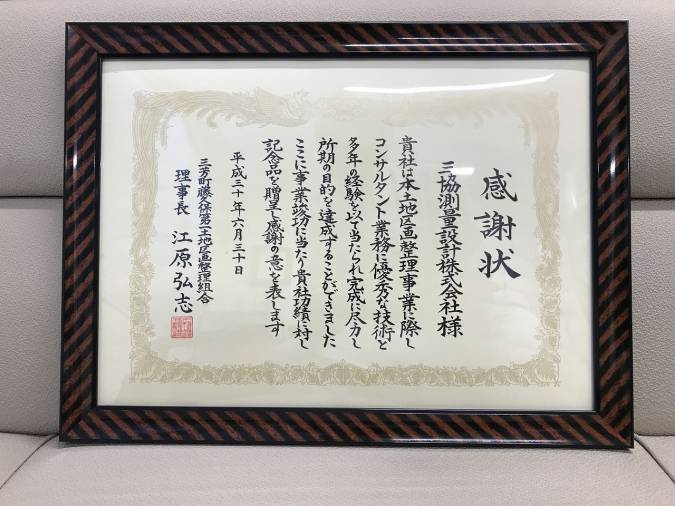 感謝状
三協測量設計株式会社様
貴社は本土地区画整理事業に際し
コンサルタント業務に優秀な技術と
多年の経験を以て当たられ完成に尽力し
所期の目的を達成することができました
ここに事業竣功に当たり貴社功績に対し
記念品を贈呈し感謝の意を表します
平成三十年六月三十日
三芳町藤久保第一土地区画整理組合
理事長 江原弘志